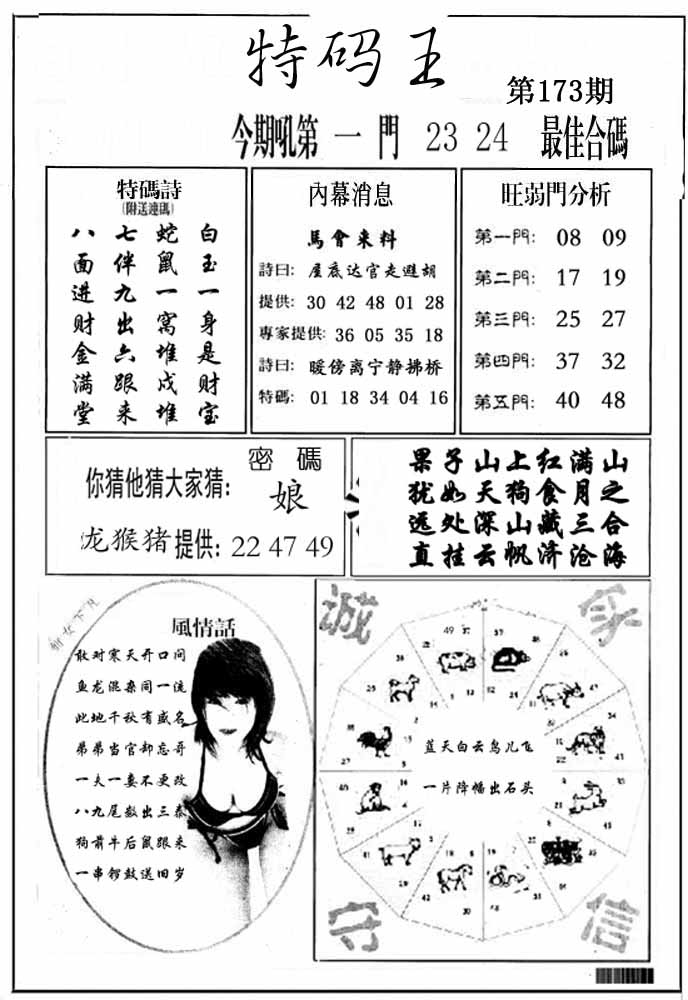 特码王
第173期
今期吼第 一 門 23 24 最佳合碼
特碼詩
(附送連碼)
白玉一身是财宝
蛇鼠一窝堆戍堆
七伴九出六跟来
八面进财金满堂
內幕消息
馬會来料
詩曰: 屋底达官走避胡
提供: 30 42 48 01 28
專家提供: 36 05 35 18
詩曰: 暖傍离宁静拂桥
特碼: 01 18 34 04 16
旺弱門分析
第一門: 08 09
第二門: 17 19
第三門: 25 27
第四門: 37 32
第五門: 40 48
密碼
你猜他猜大家猜: 娘
龙猴猪提供: 22 47 49
果子山上红满山
犹如天狗食月之
远处深山藏三合
直挂云帆济沧海
仙女下凡
風情話
敢对寒天开口问
鱼龙混杂同一流
此地千秋有盛名
弟弟当官却忘哥
一夫一妻不更改
八九尾数出三泰
狗前牛后鼠跟来
一串锣鼓送旧岁
诚
守
信
蓝天白云鸟儿飞
一片降幡出石头